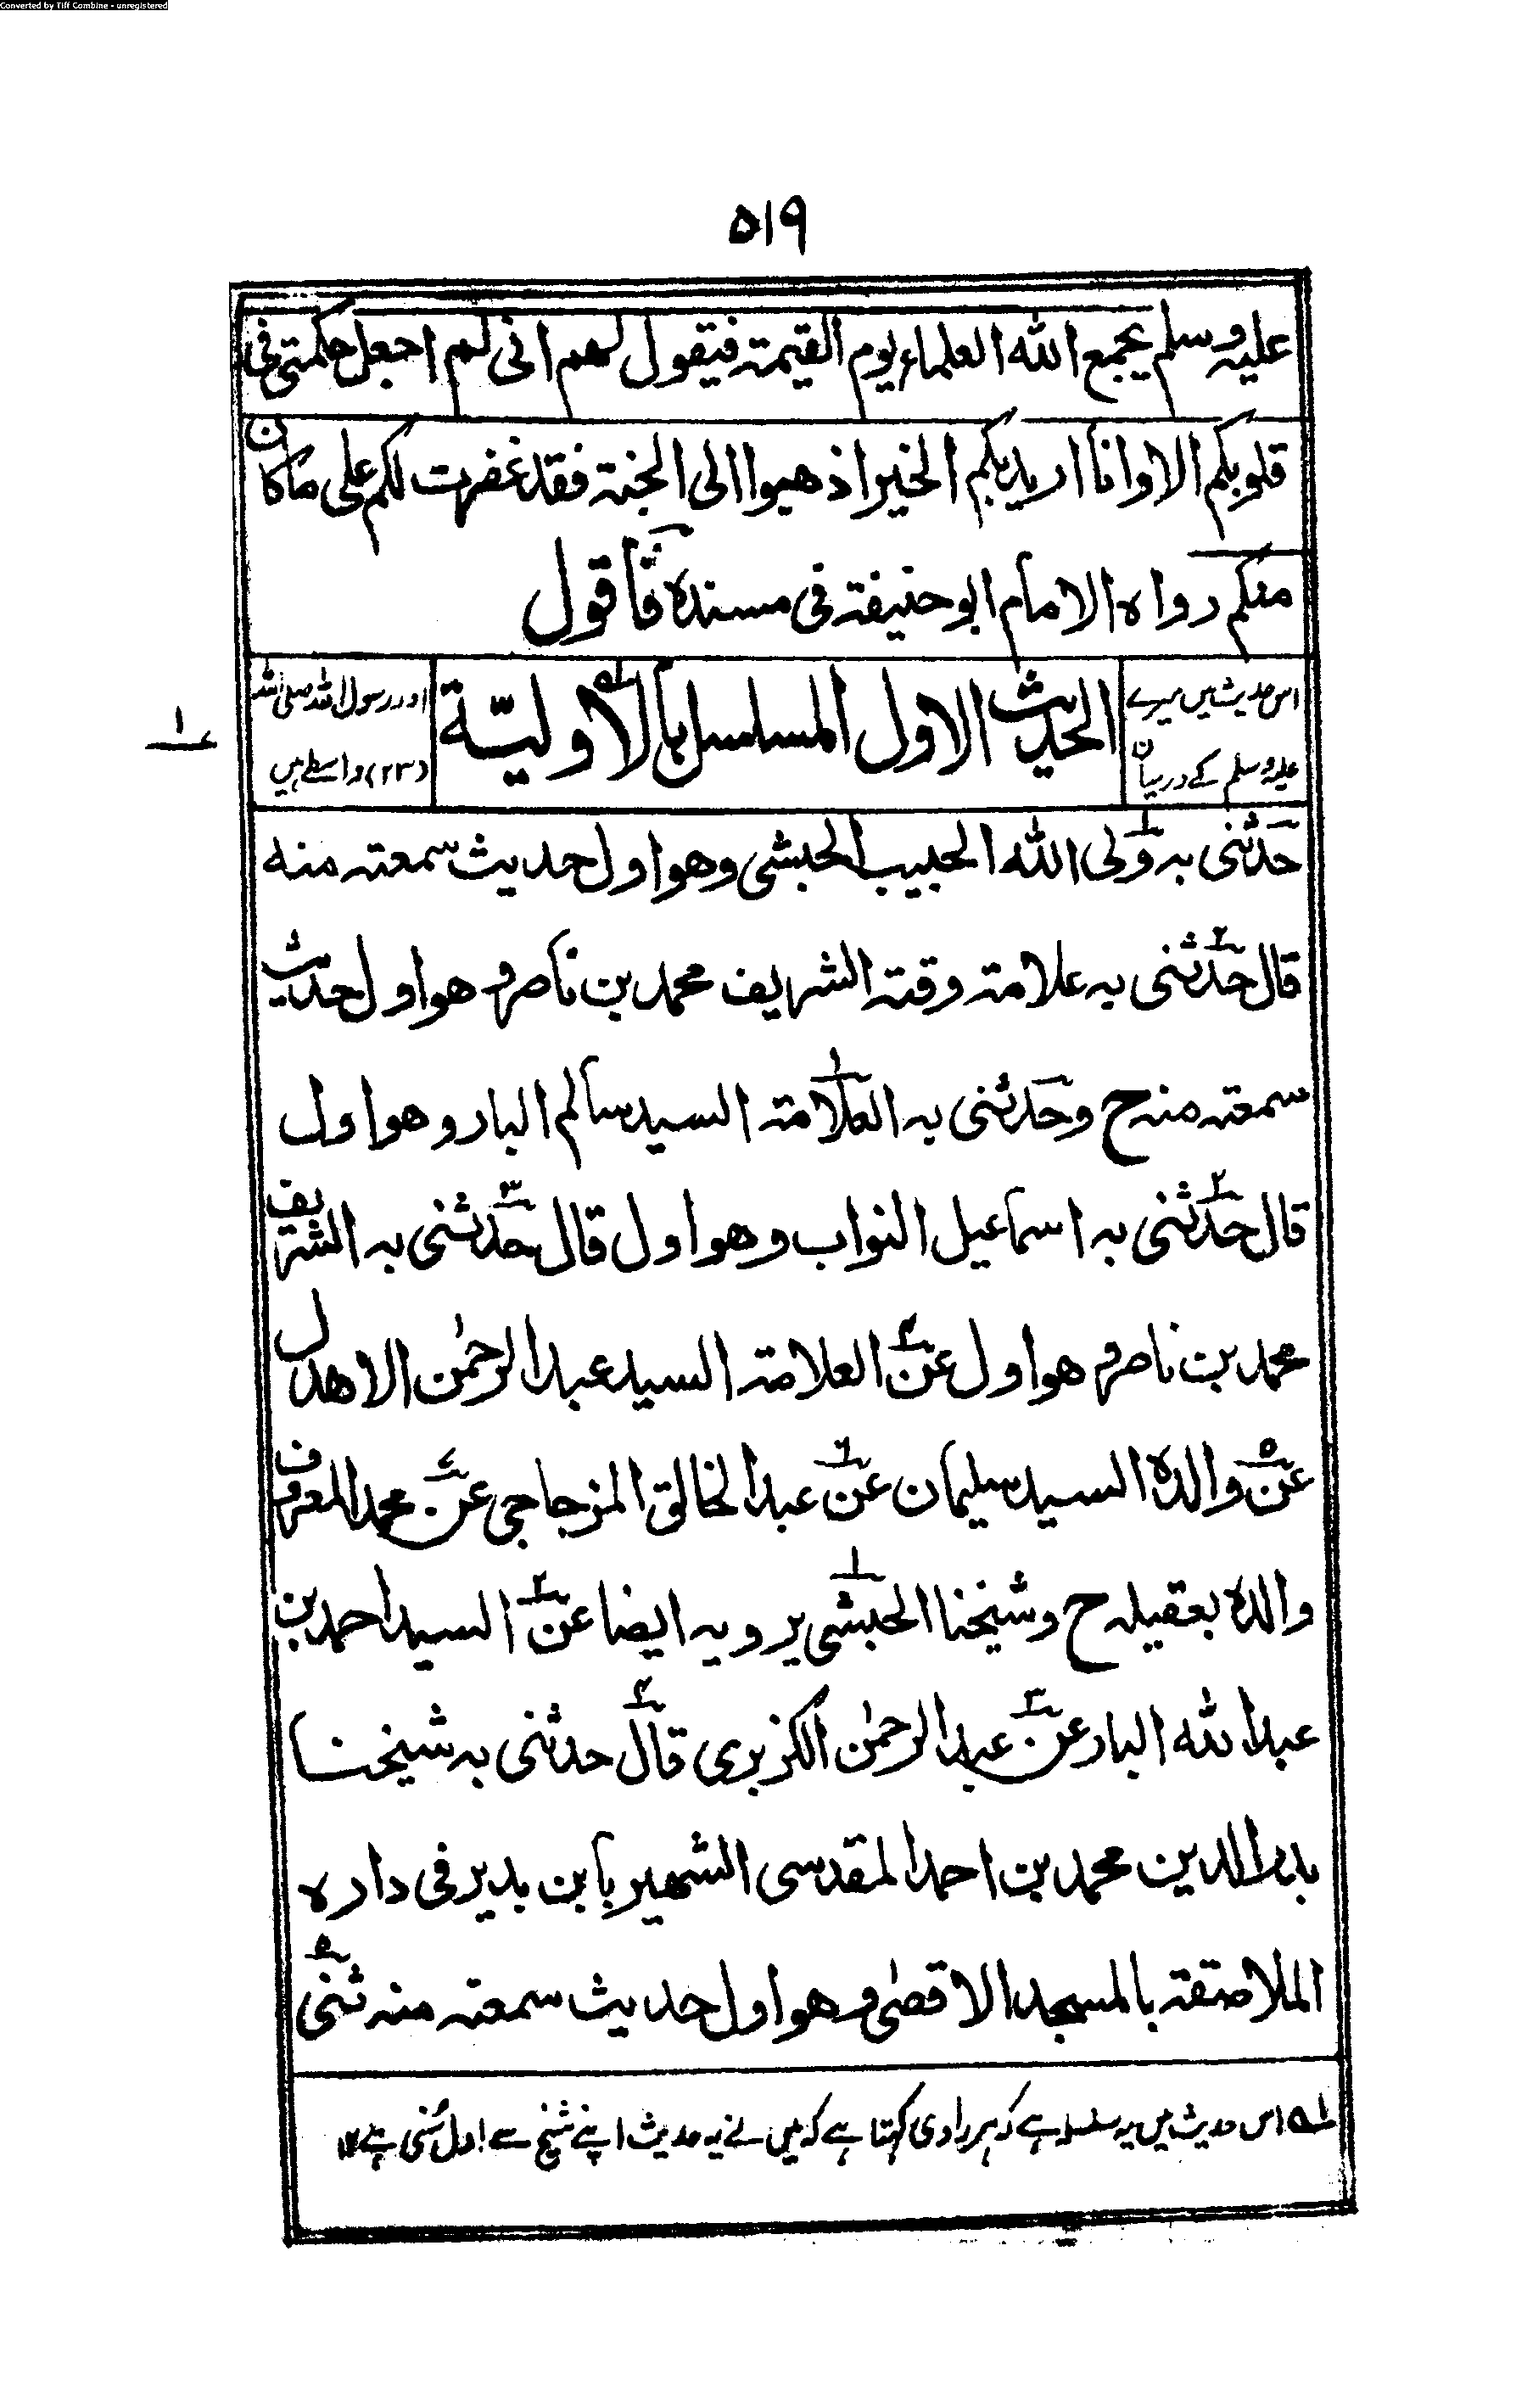 Converted by Tiff Combine - unregistered
۵۱۹
عليه وسلم يجمع الله العلماء يوم القيمة فيقول لهم انى لم اجعل حكمتى فى
قلوبكم الا وانا اريد بكم الخير اذهبوا الى الجنة فقد غفرت لكم على ما كان
منكم رواه الامام ابو حنيفة فى مسنده فاقول
اس حدیث میں میرے
اور رسول اللہ صلی اللہ
علیہ وسلم کے درمیان
(۲۳) واسطے ہیں
الحديث الاول المسلسل بالاولية
۱
حدثنى به ولى الله الحبيب الحبشى وهو اول حديث سمعته منه
قال حدثنى به علامة وقته الشريف محمد بن ناصر وهو اول حديث
سمعته منه ح وحدثنى به العلامة السيد سالم البار وهو اول
قال حدثنى به اسماعيل النواب وهو اول قال حدثنى به الشريف
محمد بن ناصر وهو اول عن العلامة السيد عبد الرحمٰن الاهدل
عن والده السيد سليمان عن عبد الخالق المزجاجى عن محمد المعروف
والده بعقيله ح وشيخنا الحبشى يرويه ايضا عن السيد احمد بن
عبد الله البار عن عبد الرحمٰن الكزبرى قال حدثنى به شيخنا
بدر الدين محمد بن احمد المقدسى الشهير بابن بدير فى داره
الملاصقة بالمسجد الاقصٰى وهو اول حديث سمعته منه ثنى
لہ اس حدیث میں یہ سلسلہ ہے کہ ہر راوی کہتا ہے کہ میں نے یہ حدیث اپنے شیخ سے اول سُنی ہے ۱۲